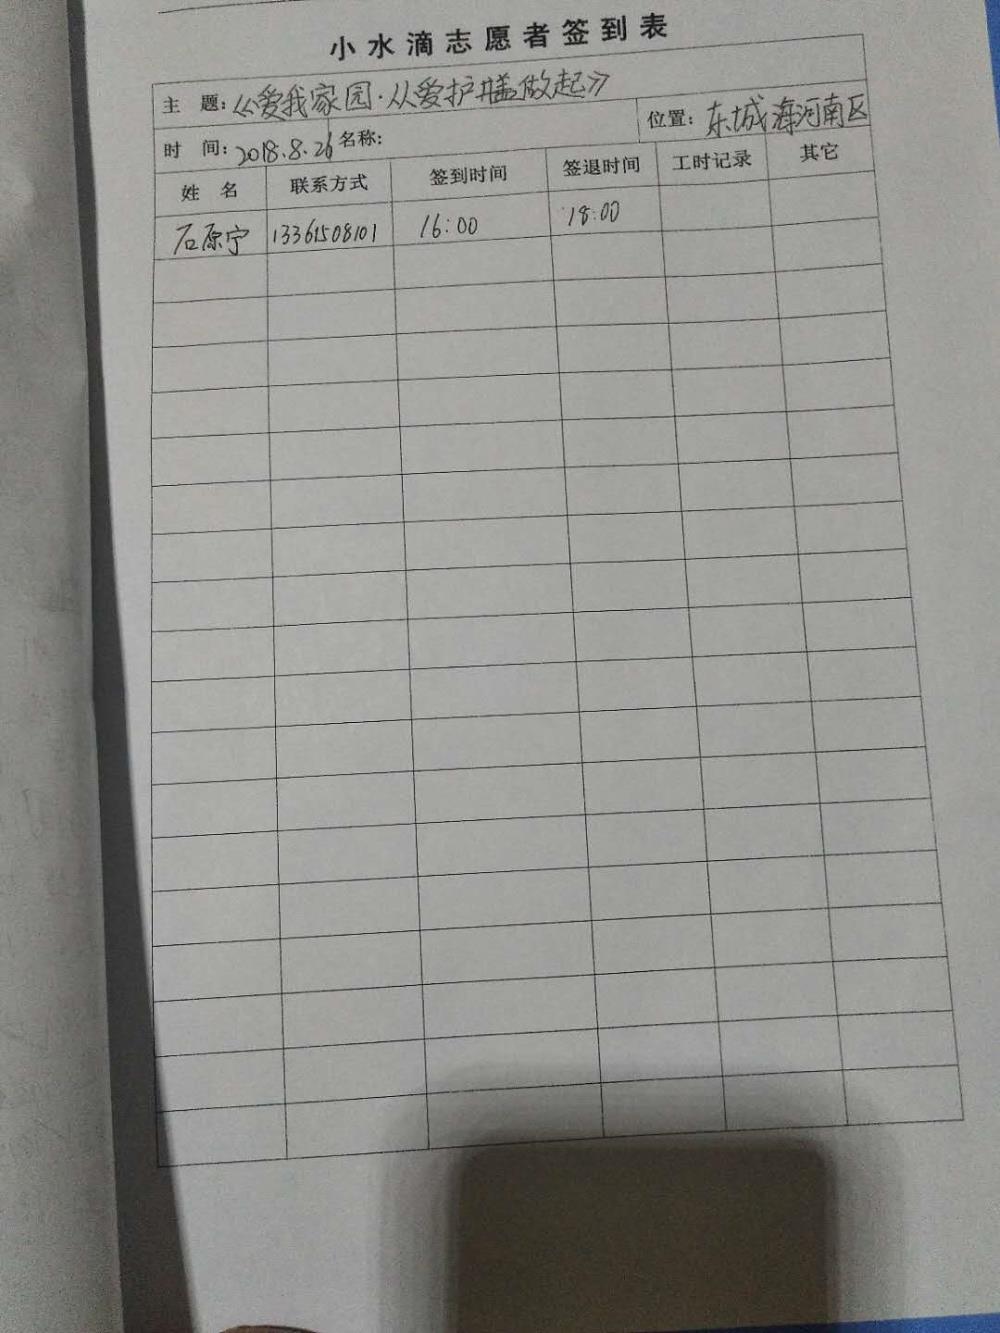 小水滴志愿者签到表
主 题：《爱我家园·从爱护井盖做起》
时 间：2018.8.26 名称： 位置：东城海河南区
姓 名 联系方式 签到时间 签退时间 工时记录 其它
石原宁 13361508101 16:00 18:00